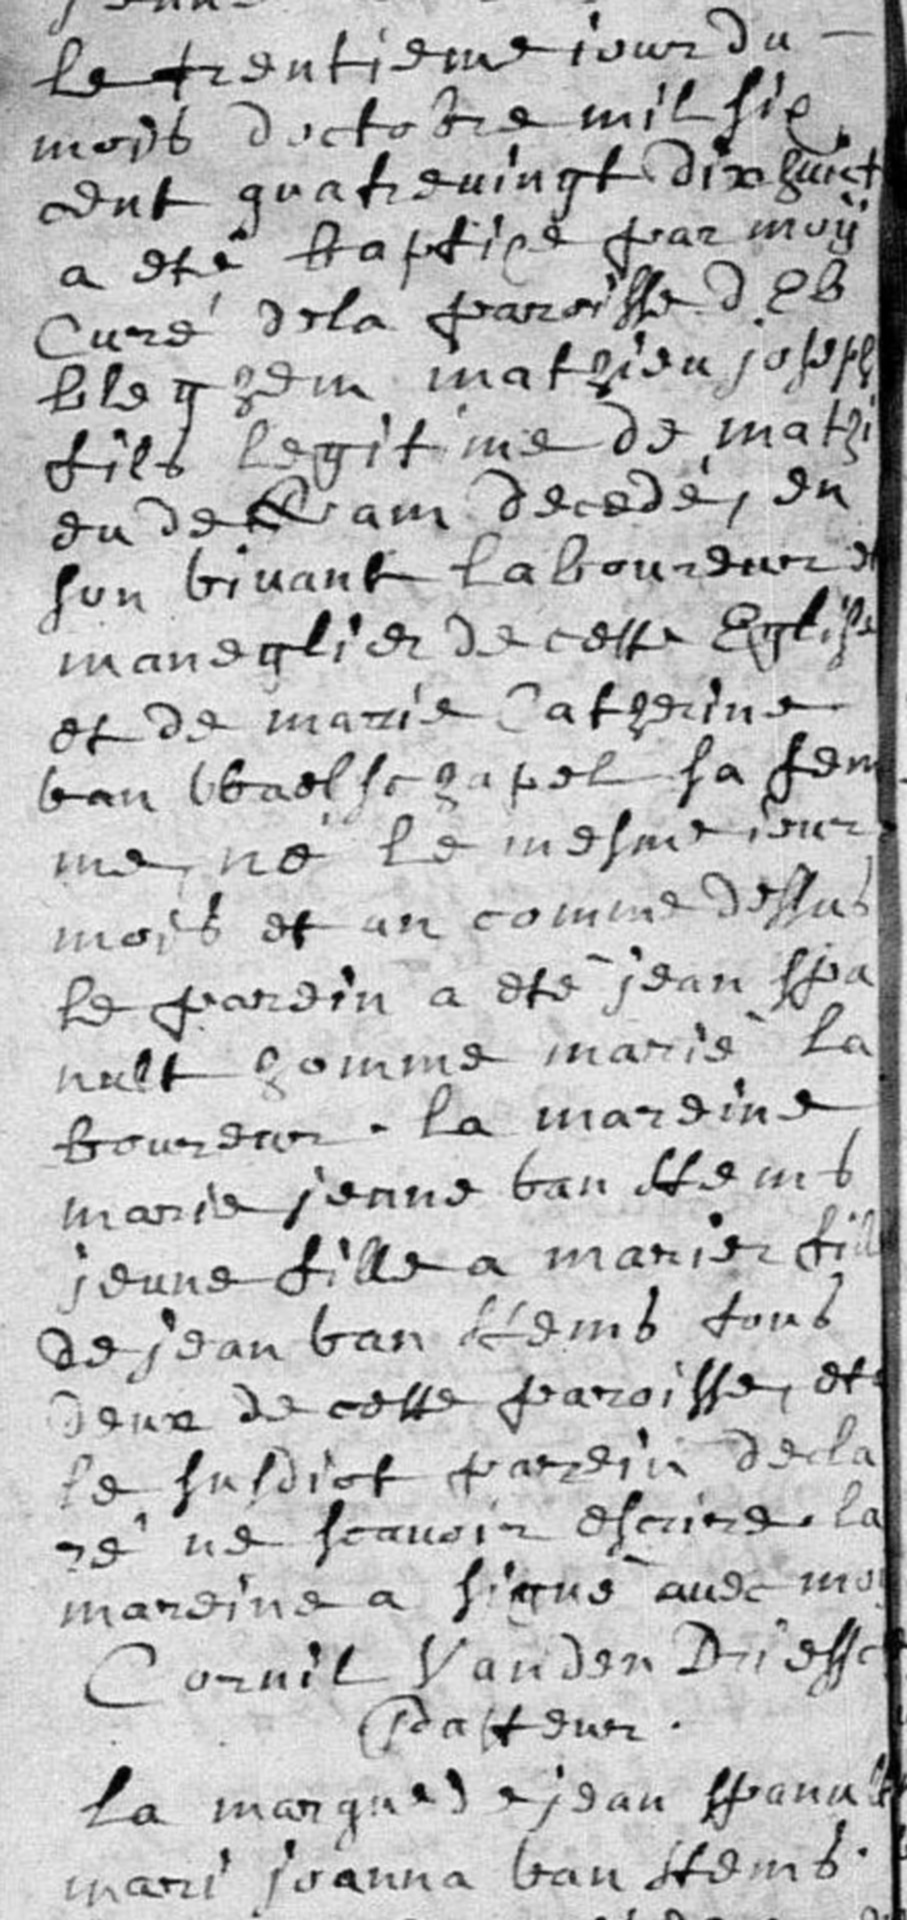 le trentieme iour du —
mois doctobre mil six
cent quatrevingt dixhuict
a eté baptizé par moÿ
Curé dela paroisse d Eb
bleghem mathieu joseph
fils legitime de mathi
eu de am decedé, en
son vivant laboureur et
maneglier de cette Eglise
et de marie Catherine
van Wbaelschapel sa fem
me, né le mesme iour
mois et an comme dessus
le parein a eté jean spa
nult homme marié la
boureur. la mareine
marie jenne van stems
jeune fille a marier fill
de jean van stems tous
deux de cette paroisse, et
le susdict parein decla
ré ne scavoir escrire. la
mareine a signé avec moy
Cornil Vanden Driessc
Pasteur.
la marque de jean spanult
mari joanna van stems.